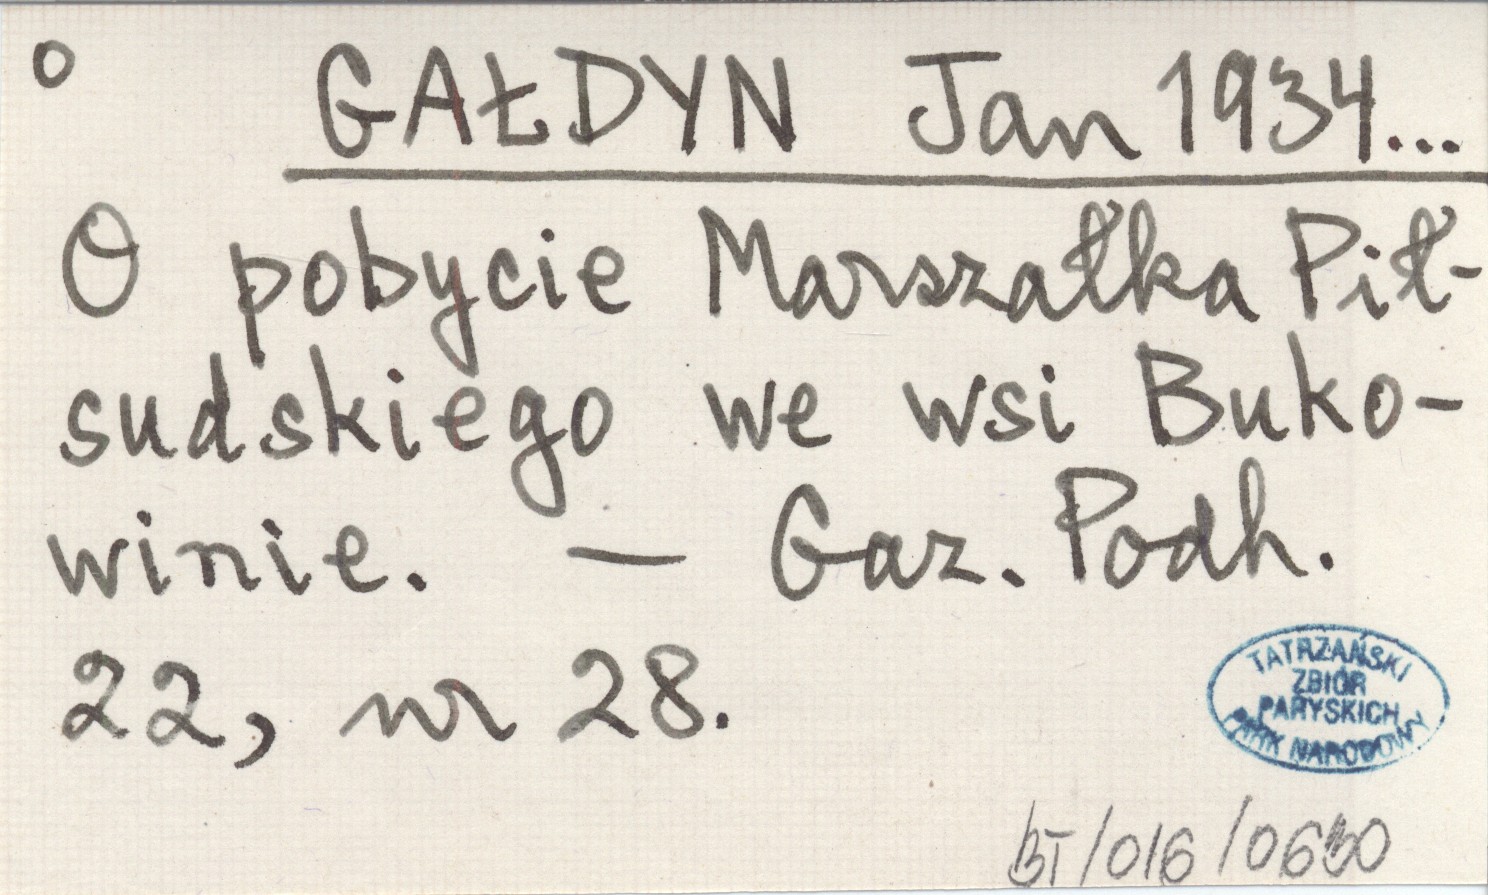 o GAŁDYN Jan 1934...
O pobycie Marszałka Pił-
sudskiego we wsi Buko-
winie. — Gaz. Podh.
22, nr 28.
TATRZAŃSKI
ZBIÓR
PARYSKICH
PARK NARODOWY
BT/016/0630